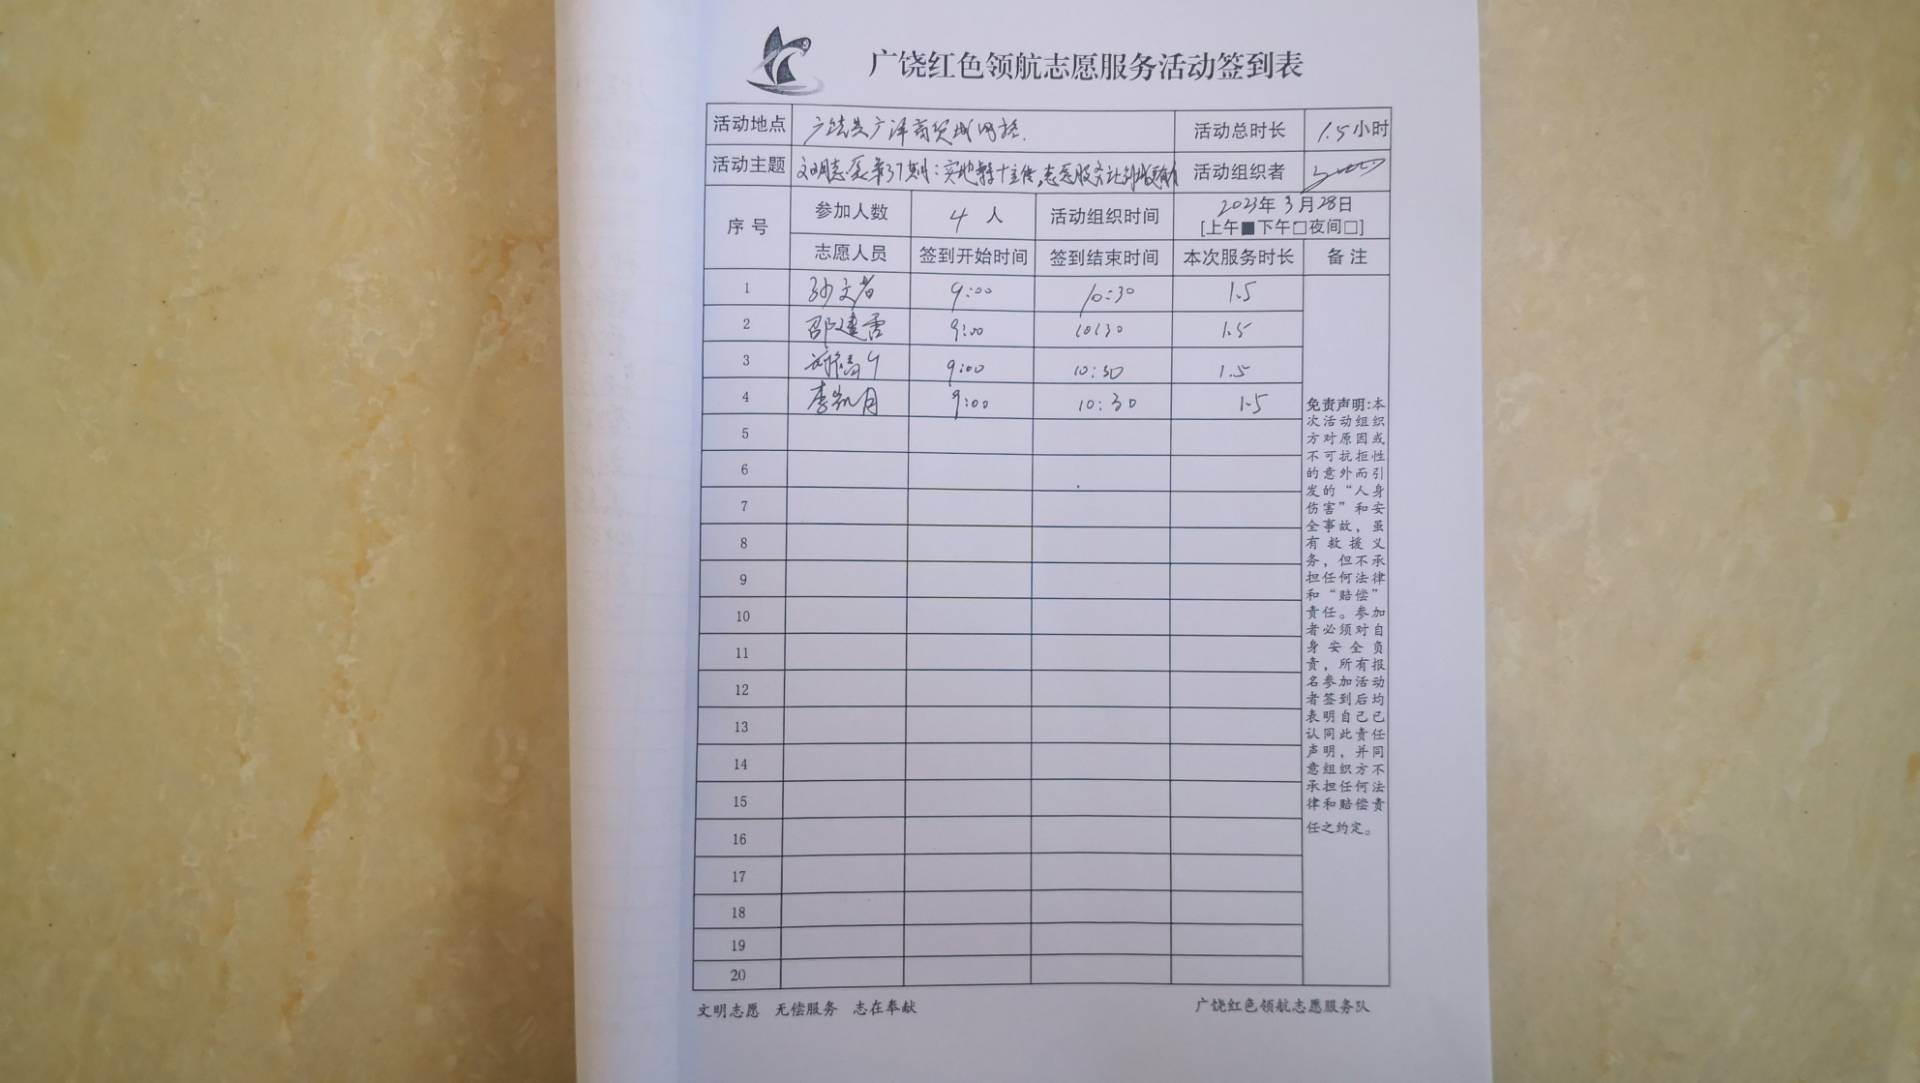 广饶红色领航志愿服务活动签到表
活动地点 广饶县广泽商贸城网格. 活动总时长 1.5小时
活动主题 文明志愿第37期：实地 志愿服务让 活动组织者
序号 参加人数 4 人 活动组织时间 2023年3月28日
[上午■下午□夜间□]
志愿人员 签到开始时间 签到结束时间 本次服务时长 备注
1 孙文者 9:00 10:30 1.5
2 邵建香 9:00 10:30 1.5
3 9:00 10:30 1.5
4 李凯月 9:00 10:30 1.5
5
6
7
8
9
10
11
12
13
14
15
16
17
18
19
20
免责声明:本
次活动组织
方对原因或
不可抗拒性
的意外而引
发的“人身
伤害”和安
全事故，虽
有救援义
务，但不承
担任何法律
和“赔偿”
责任。参加
者必须对自
身安全负
责，所有报
名参加活动
者签到后均
表明自己已
认同此责任
声明，并同
意组织方不
承担任何法
律和赔偿责
任之约定。
文明志愿 无偿服务 志在奉献 广饶红色领航志愿服务队